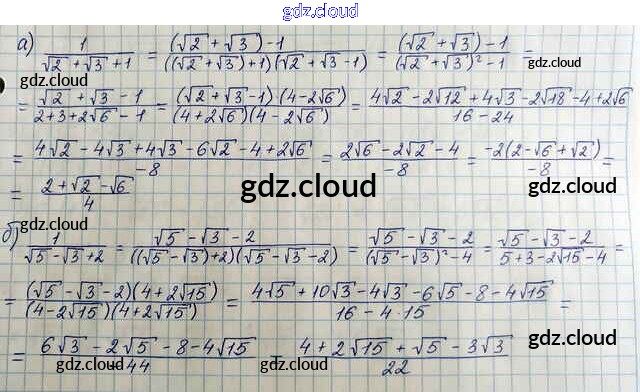 gdz.cloud
а) 1/(√2 + √3 + 1) = ((√2 + √3) - 1)/(((√2 + √3) + 1)(√2 + √3 - 1)) = ((√2 + √3) - 1)/((√2 + √3)² - 1) =
gdz.cloud
gdz.cloud
= (√2 + √3 - 1)/(2 + 3 + 2√6 - 1) = ((√2 + √3 - 1)(4 - 2√6))/((4 + 2√6)(4 - 2√6)) = (4√2 - 2√12 + 4√3 - 2√18 - 4 + 2√6)/(16 - 24)
= (4√2 - 4√3 + 4√3 - 6√2 - 4 + 2√6)/(-8) = (2√6 - 2√2 - 4)/(-8) = (-2(2 - √6 + √2))/(-8) =
= (2 + √2 - √6)/4
gdz.cloud
gdz.cloud
gdz.cloud
б) 1/(√5 - √3 + 2) = (√5 - √3 - 2)/(((√5 - √3) + 2)(√5 - √3 - 2)) = (√5 - √3 - 2)/((√5 - √3)² - 4) = (√5 - √3 - 2)/(5 + 3 - 2√15 - 4) =
= ((√5 - √3 - 2)(4 + 2√15))/((4 - 2√15)(4 + 2√15)) = (4√5 + 10√3 - 4√3 - 6√5 - 8 - 4√15)/(16 - 4·15) =
gdz.cloud
= (6√3 - 2√5 - 8 - 4√15)/(-44) = (4 + 2√15 + √5 - 3√3)/22
gdz.cloud
gdz.cloud